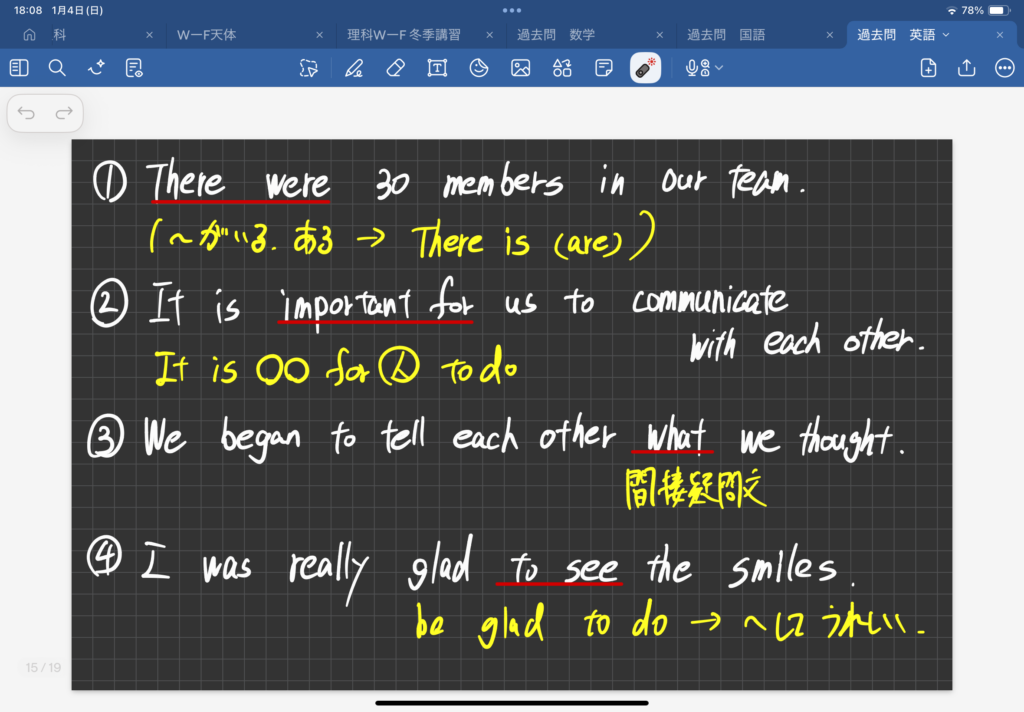 18:08 1月4日(日)
78%
科
WーF天体
理科WーF 冬季講習
過去問 数学
過去問 国語
過去問 英語
① There were 30 members in our team.
(〜がいる.ある → There is (are))
② It is important for us to communicate
with each other.
It is ○○ for 人 to do
③ We began to tell each other what we thought.
間接疑問文
④ I was really glad to see the smiles.
be glad to do → 〜してうれしい.
15 / 19